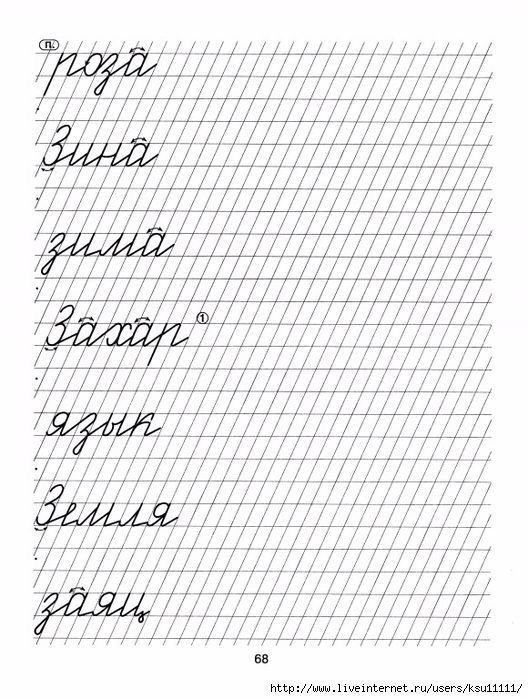 п.
роза
Зина
зима
Захар ①
язык
Земля
заяц
68
http://www.liveinternet.ru/users/ksu11111/